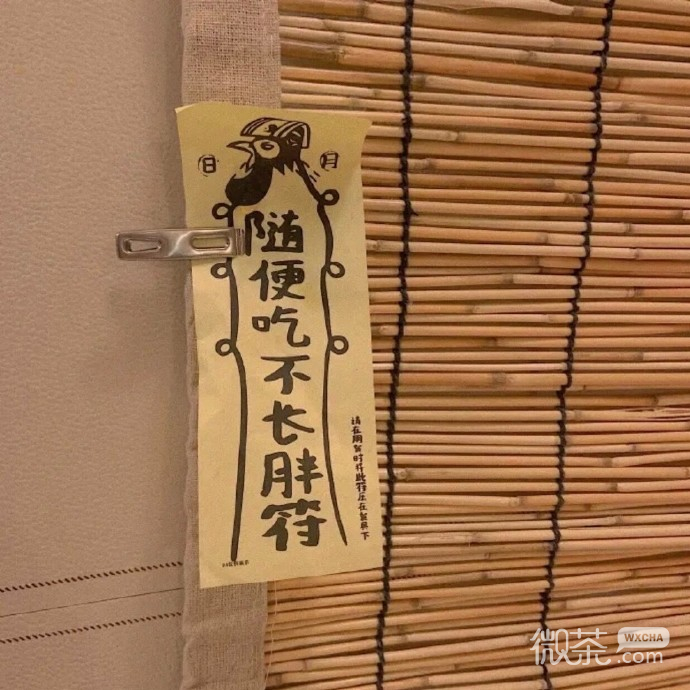 日
月
随便吃不长胖符
请在用餐时将此符压在餐具下
微茶
WXCHA
.com